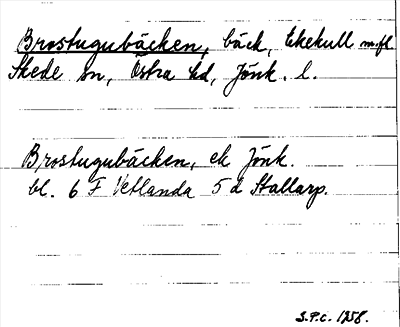 Brostugubäcken, bäck, Ekekull m.fl.
Skede sn, Östra hd, Jönk. l.
Brostugubäcken, ek Jönk.
bl. 6 F Vetlanda 5 d Stallarp.
S.P.C. 1258.